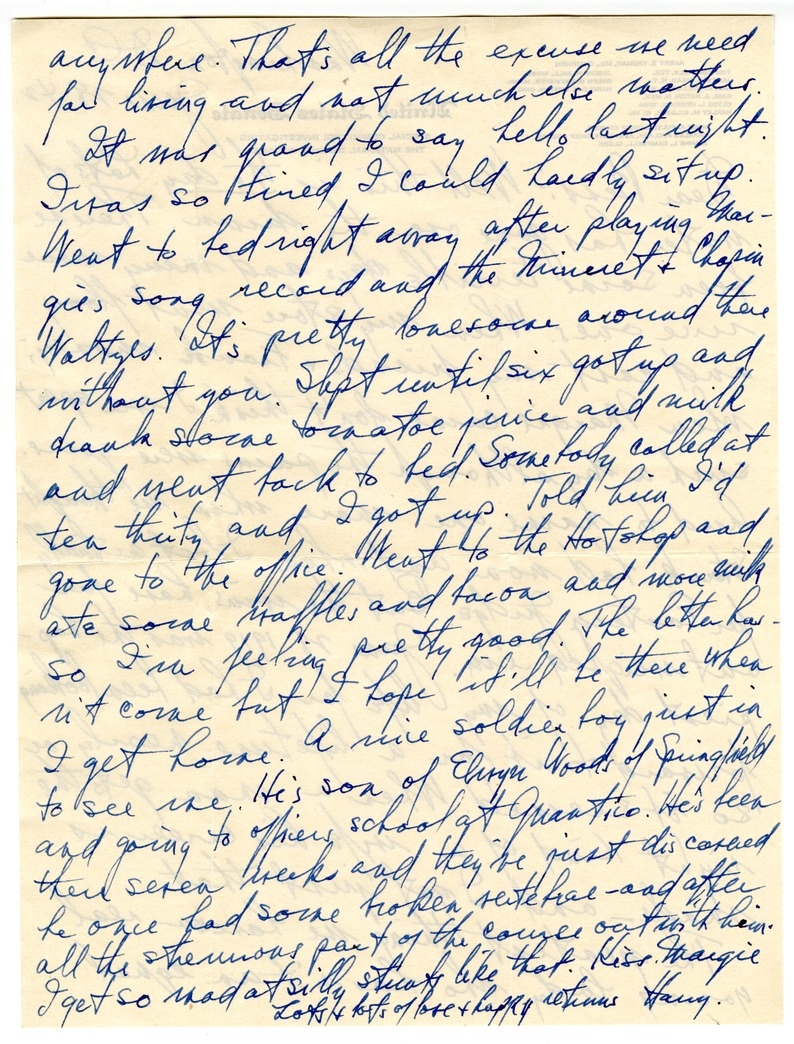 anywhere. That's all the excuse we need
for living and not much else matters.
It was grand to say hello last night.
I was so tired I could hardly sit up.
Went to bed right away after playing Mar-
gies song record and the Minuet & Chopin
Waltzes. It's pretty lonesome around there
without you. Slept until six got up and
drank some tomatoe juice and milk
and went back to bed. Somebody called at
ten thirty and I got up. Told him I'd
gone to the office. Went to the Hotshop and
ate some waffles and bacon and more milk
so I'm feeling pretty good. The letter has-
n't come but I hope it'll be there when
I get home. A nice soldier boy just in
to see me. He's son of Elwyn Woods of Springfield
and going to officers school at Quantico. He's been
there seven weeks and they've just discovered
he once had some broken vertebrae - and after
all the strenuous part of the course out with him.
I get so mad at silly stunts like that. Kiss Margie
Lots & lots of love & happy returns Harry.